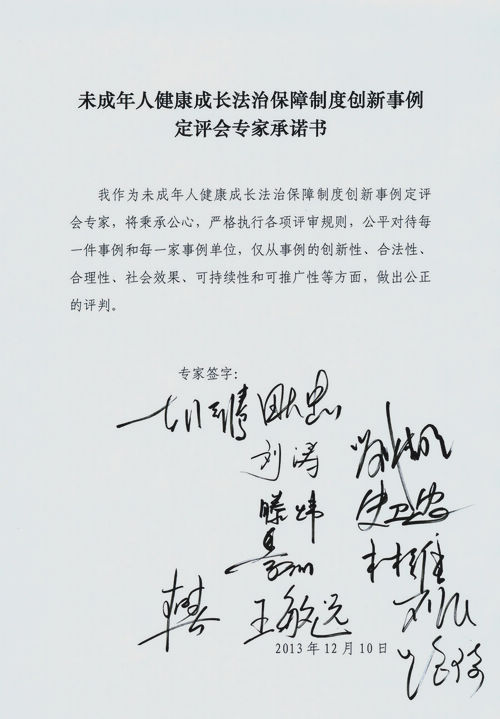 未成年人健康成长法治保障制度创新事例
定评会专家承诺书
我作为未成年人健康成长法治保障制度创新事例定评
会专家，将秉承公心，严格执行各项评审规则，公平对待每
一件事例和每一家事例单位，仅从事例的创新性、合法性、
合理性、社会效果、可持续性和可推广性等方面，做出公正
的评判。
专家签字：
刘涛
滕炜
史卫忠
林维
王敏远
2013年12月10日